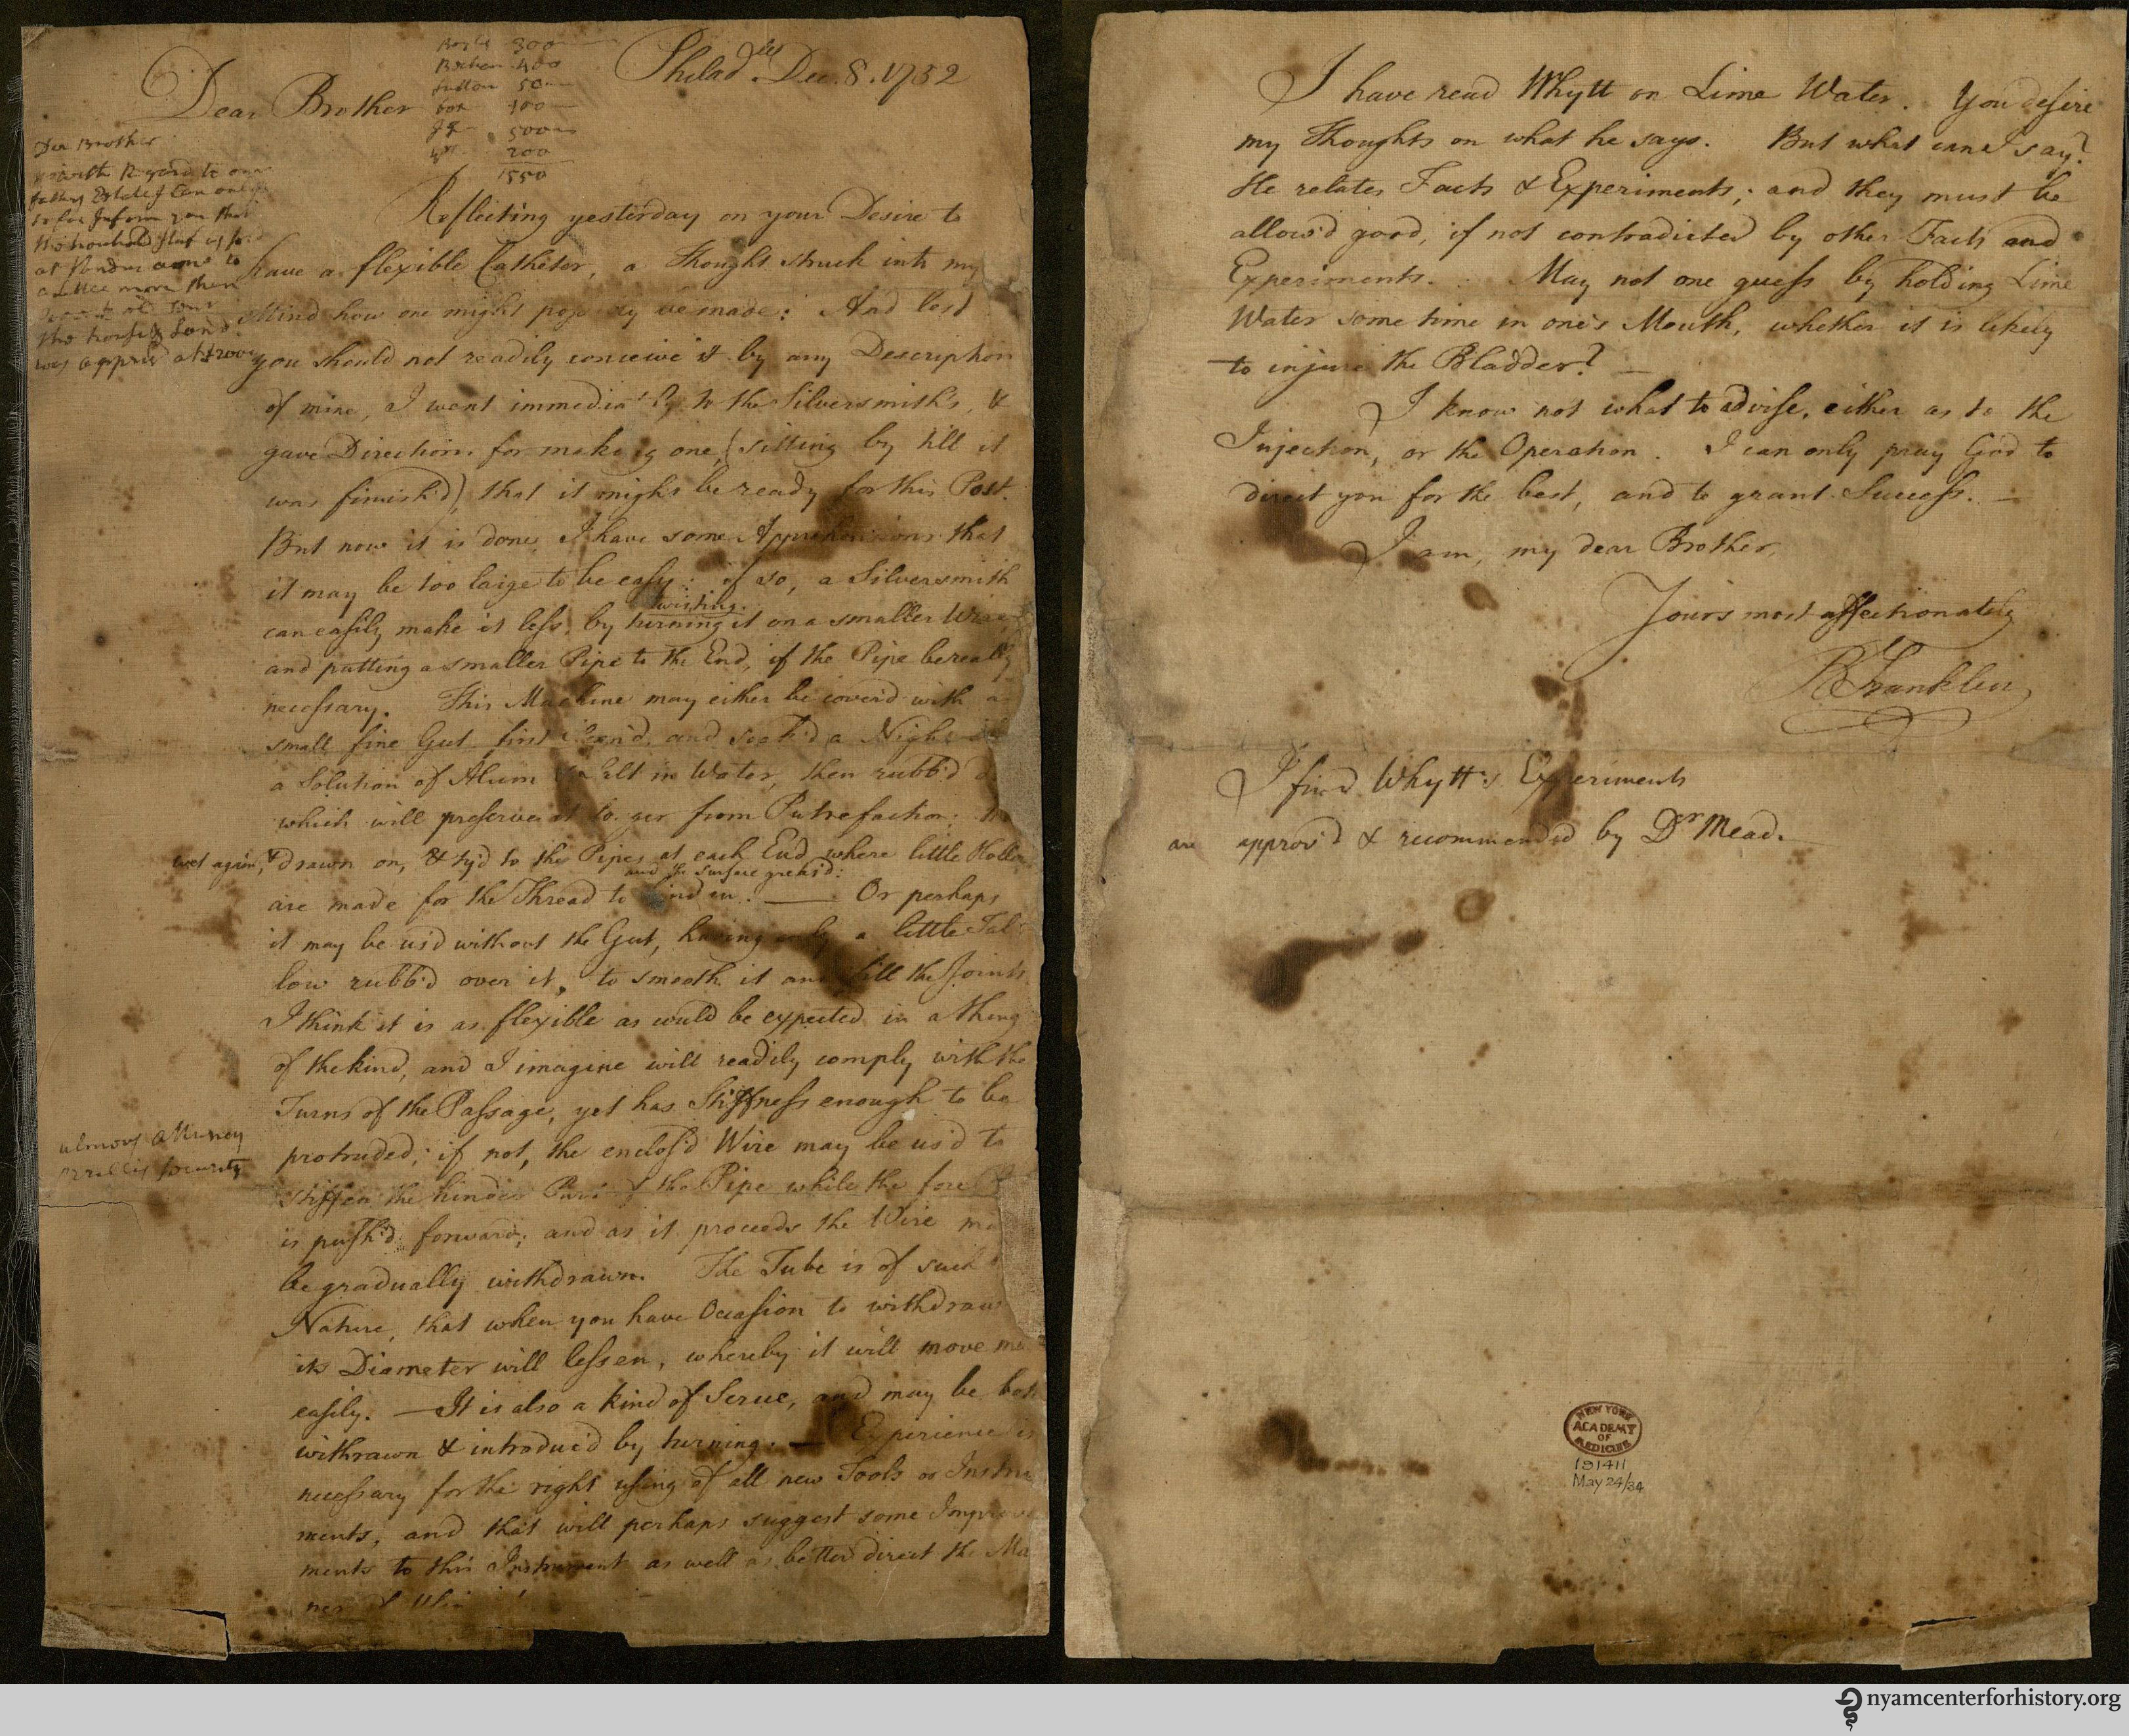 Philad.ª Dec. 8. 1752
Dear Brother
300
400
50
100
500
200
1550
Dear Brother
with Regard to our
fathers Estate I Can only
so far Inform you that
the houshold stuf is sold
at Vendue
a little more then
the house & Land
was apprisd
Reflecting yesterday on your Desire to
have a flexible Catheter, a Thought struck into my
Mind how one might be made: And lest
you should not readily conceive it by any Description
of mine, I went immediately to the Silversmith's, &
gave Directions for making one, (sitting by till it
was finish'd), that it might be ready for this Post.
But now it is done I have some Apprehensions that
it may be too large to be easy: if so, a Silversmith
twisting.
can easily make it less, by turning it on a smaller Wire,
and putting a smaller Pipe to the End, if the Pipe be really
necessary. This Machine may either be cover'd with a
small fine Gut first clean'd, and soak'd a Night in
a Solution of Alum & Salt in Water, then rubb'd
which will preserve it longer from Putrefaction:
wet again, & drawn on, & ty'd to the Pipes at each End where little
and the Surface greas'd:
are made for the Thread to bind in. — Or perhaps
it may be us'd without the Gut, having only a little Tal-
low rubb'd over it, to smooth it and fill the Joints.
I think it is as flexible as would be expected in a thing
of the kind, and I imagine will readily comply with the
Turns of the Passage, yet has Stiffness enough to be
protruded; if not, the enclos'd Wire may be us'd to
almous atturney
security
stiffen the hinder Part of the Pipe while the fore
is push'd forward; and as it proceeds the Wire
be gradually withdrawn. The Tube is of such
Nature, that when you have Occasion to withdraw
its Diameter will lessen, whereby it will move
easily. — It is also a kind of Scrue, and may be both
withrawn & introduc'd by turning. — Experience is
necessary for the right using of all new Tools or Instru
ments, and that will perhaps suggest some Improve
ments to this Instrument as well as better direct the Man
ner
I have read Whytt on Lime Water. You desire
my Thoughts on what he says. But what can I say?
He relates Facts & Experiments; and they must be
allow'd good, if not contradicted by other Facts and
Experiments. May not one guess by holding Lime
Water some time in one's Mouth, whether it is likely
to injure the Bladder? —
I know not what to advise, either as to the
Injection, or the Operation. I can only pray God to
direct you for the best, and to grant Success. —
I am, my dear Brother,
Yours most affectionately
B Franklin
I find Whytt's Experiments
are approv'd & recommended by Dr Mead.
NEW YORK
ACADEMY
OF
MEDICINE
191411
May 24/34
nyamcenterforhistory.org